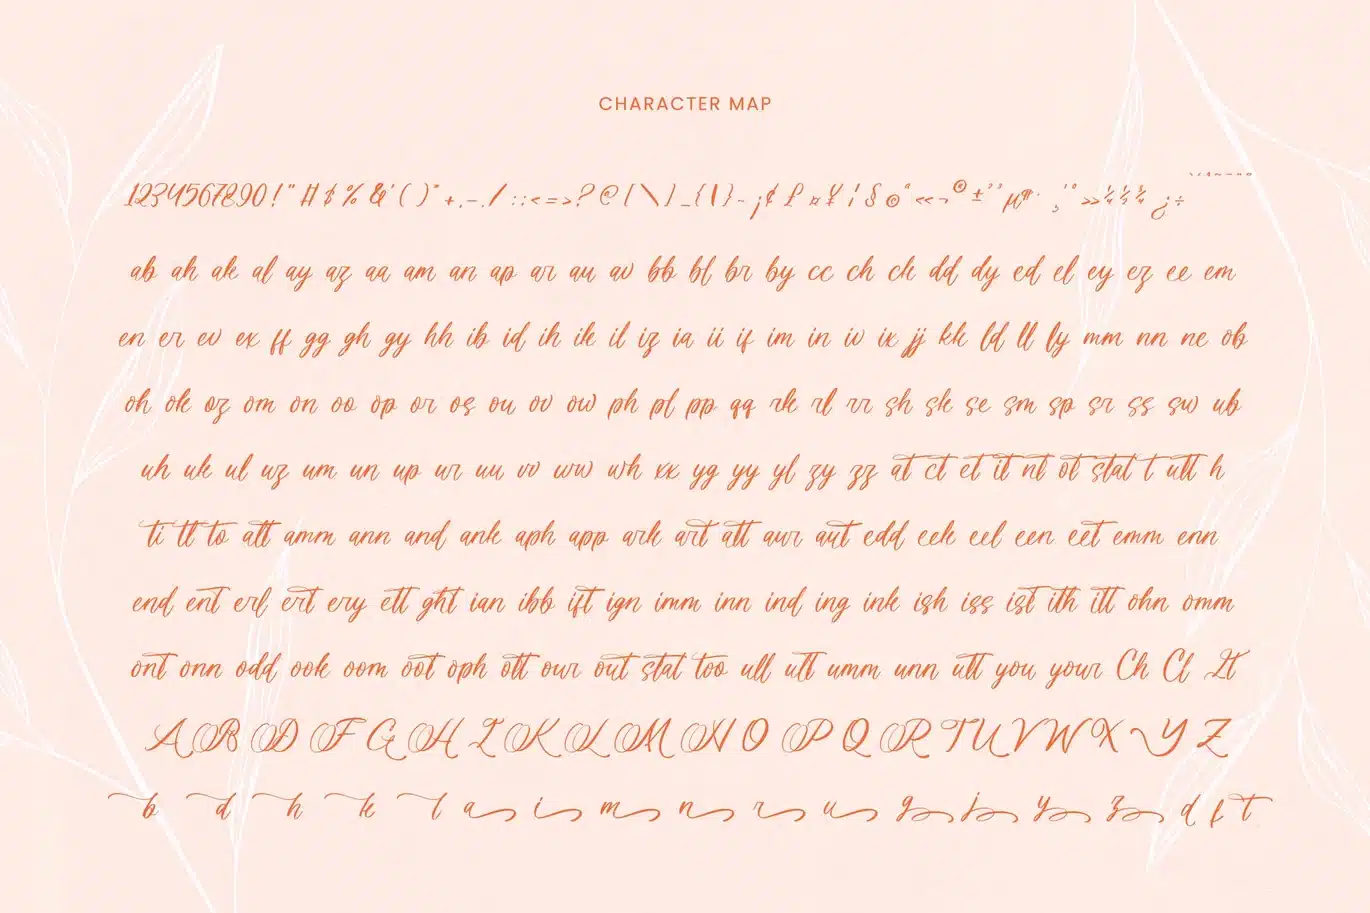 CHARACTER MAP
1234567890!" # $ % &' ( )* +,-./ :;<=>? @ [ \ ] _ { | } ~ ¡ ¢ £ ¤ ¥ ¦ § © ª « ¬ ® ± ² ³ µ ¶ · ¸ ¹ º » ¼ ½ ¾ ¿ ÷
ab ah ak al ay az aa am an ap ar au av bb bl br by cc ch ck dd dy ed el ey ez ee em
en er ev ex ff gg gh gy hh ib id ih ik il iz ia ii if im in iv ix jj kk ld ll ly mm nn ne ob
oh ok oz om on oo op or os ou ov ow ph pl pp qq rk rl rr sh sk se sm sp sr ss sw ub
uh uk ul uz um un up ur uu vv ww wh xx yg yy yl zy zz at ct et it nt ot stat t utt h
ti tt to att amm ann and ank aph app ark art att aur aut edd eek eel een eet emm enn
end ent erl ert ery ett ght ian ibb ift ign imm inn ind ing ink ish iss ist ith itt ohn omm
ont onn odd ook oom oot oph ott our out stat too ull ult umm unn utt you your Ch Cl Lt
A B D F G H I K L M N O P Q R T U V W X Y Z
b d h k l a i m n r u g j y z d f t